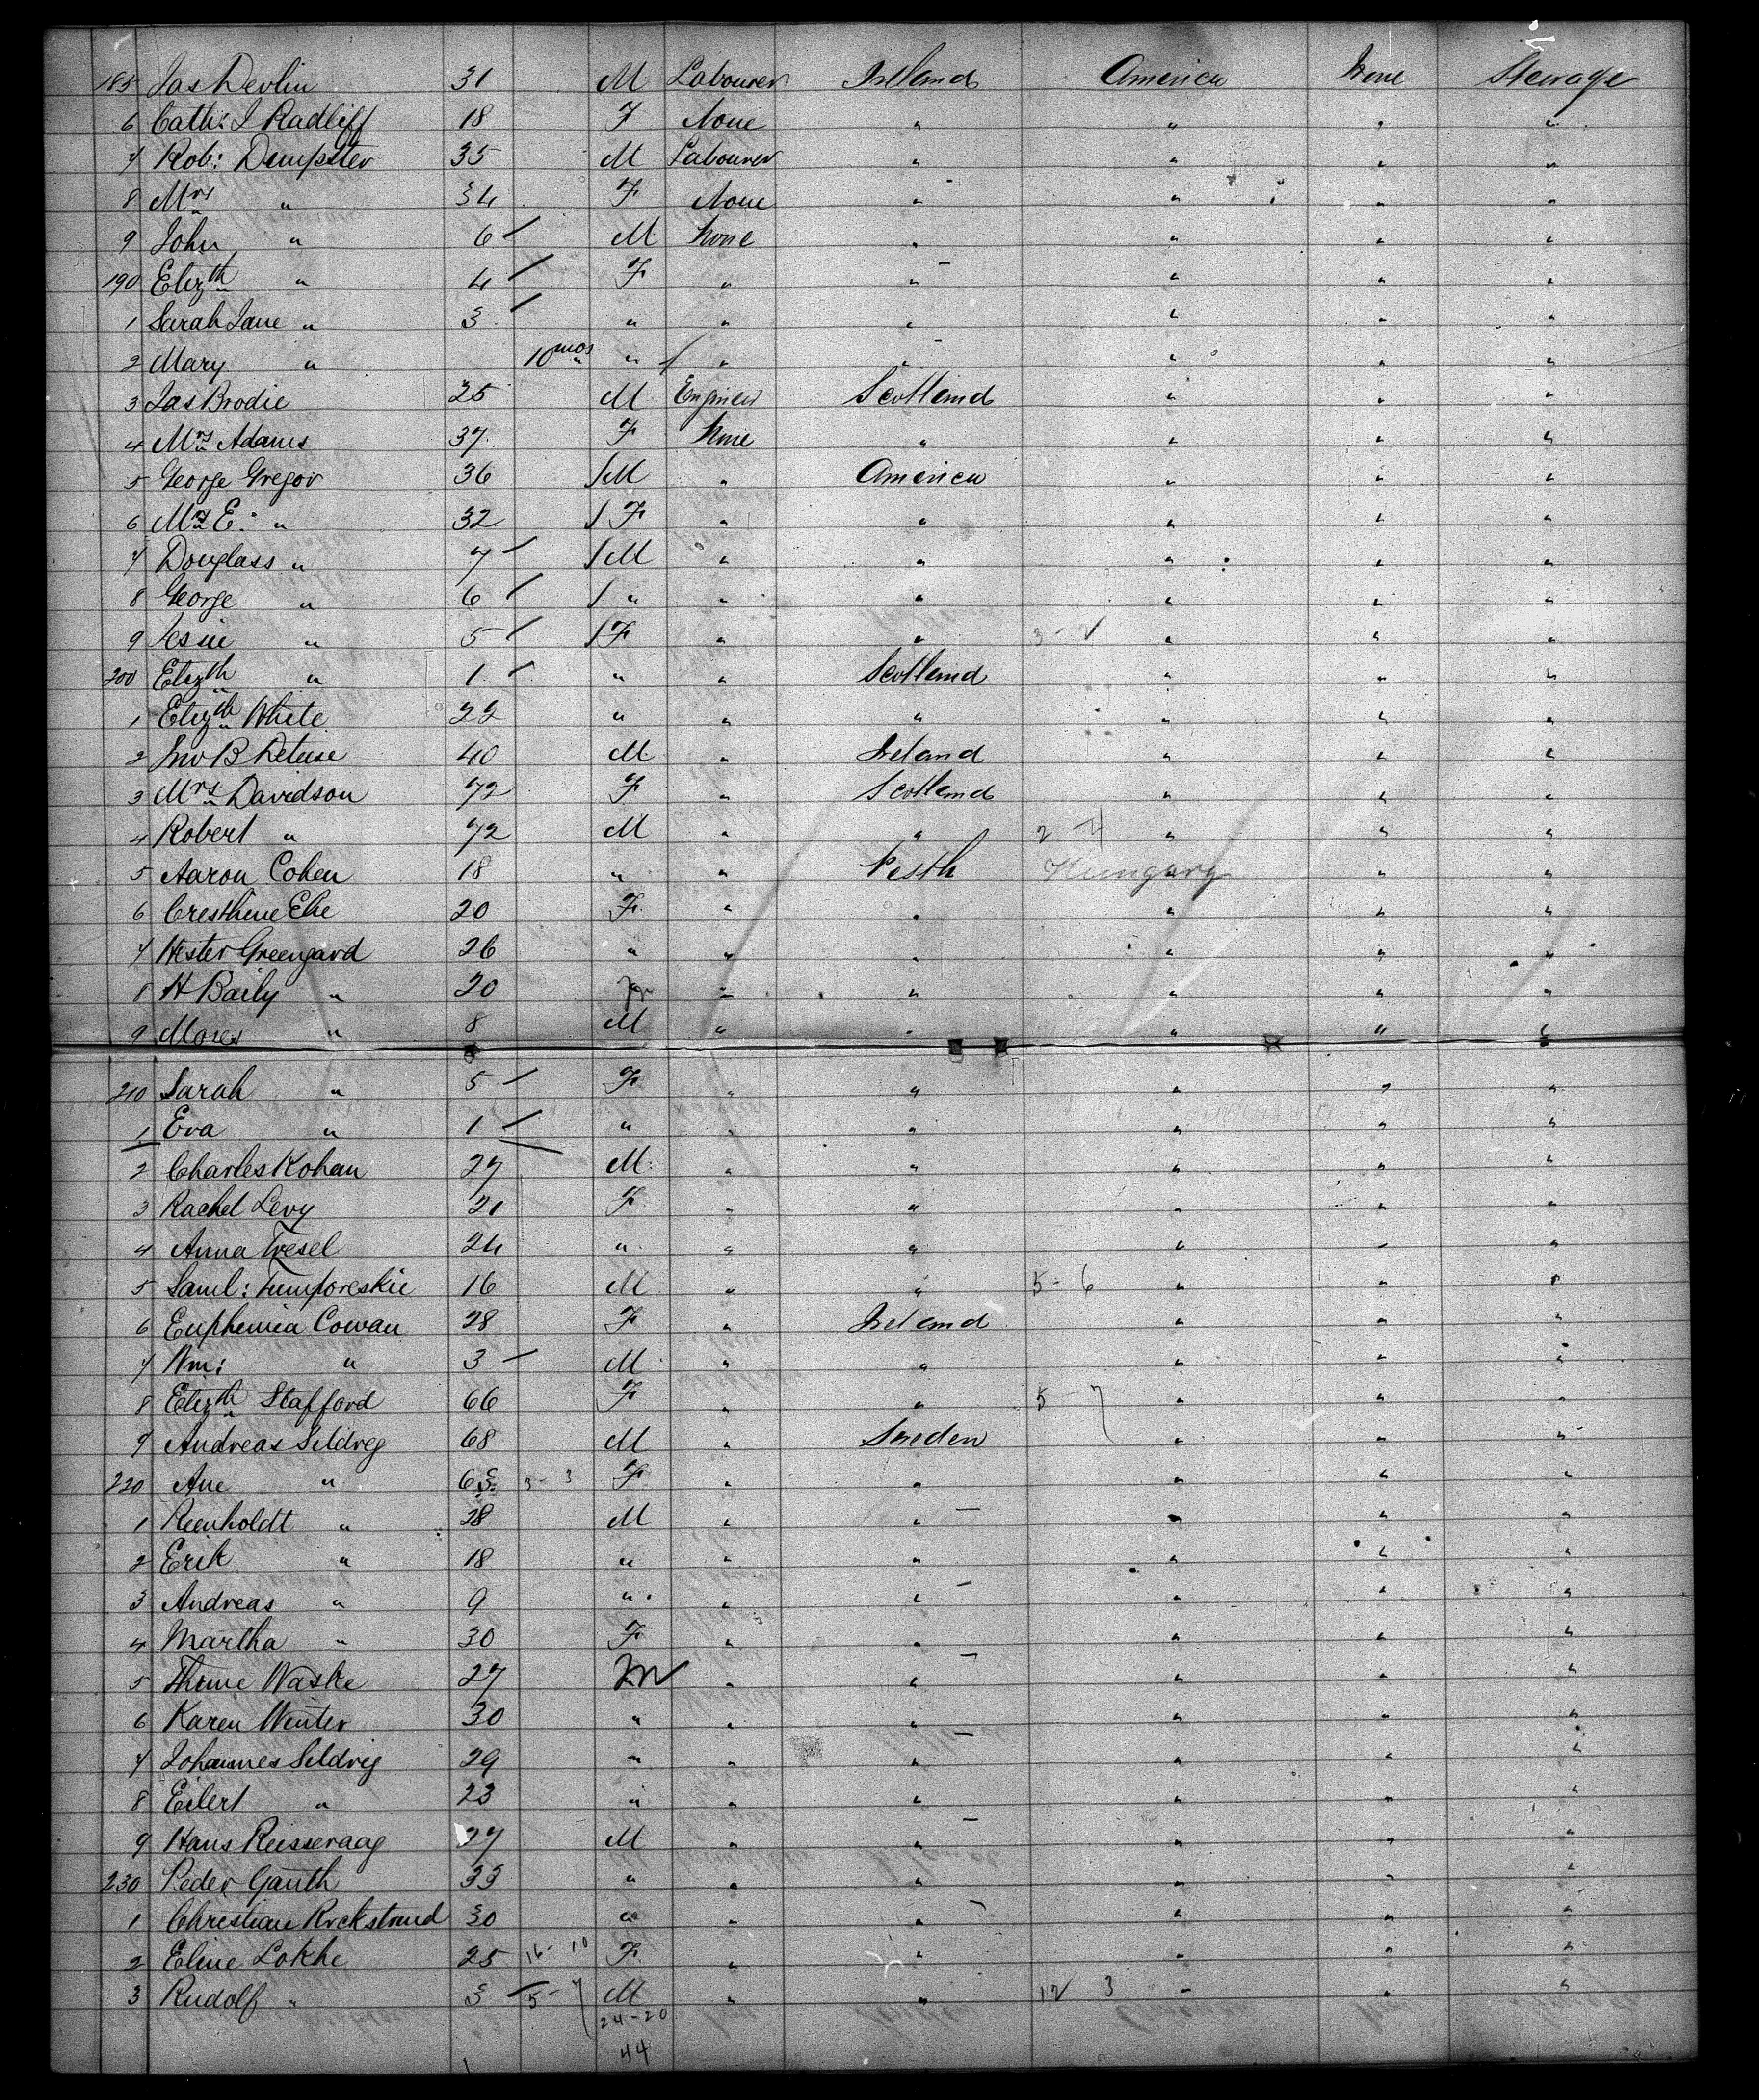 185 Jas Devlin 31 M Labourer Ireland America None Steerage
6 Cath: J Radliff 18 F None " " " "
7 Rob: Dempster 35 M Labourer " " " "
8 Mrs " 34 F None " " " "
9 John " 6 M None " " " "
190 Elizth " 4 F " " " " "
1 Sarah Jane " 3 " " " " " "
2 Mary " 10 mos " " " " " "
3 Jas Brodie 25 M Engineer Scotland " " "
4 Mrs Adams 37 F None " " " "
5 George Gregor 36 M " America " " "
6 Mrs E: " 32 F " " " " "
7 Douglass " 7 M " " " " "
8 George " 6 " " " " " "
9 Jessie " 5 F " " " " "
200 Elizth " 1 " " Scotland " " "
1 Elizth White 22 " " " " " "
2 Jno B 40 M " Ireland " " "
3 Mrs Davidson 72 F " Scotland " " "
4 Robert " 72 M " " 2 " " "
5 Aaron Cohen 18 " " Pesth Hungary " " "
6 Cresthine 20 F " " " " "
7 Hester Greengard 26 " " " " " "
8 H Baily " 20 " " " " "
9 Moses " 8 M " " " " "
210 Sarah " 5 F " " " " "
1 Eva " 1 " " " " " "
2 Charles Kohan 27 M " " " " "
3 Rachel Levy 21 F " " " " "
4 Anna Tresel 24 " " " " " "
5 Saml: Tumporeskie 16 M " " 5-6 " " "
6 Euphemia Cowan 28 F " Ireland " " "
7 Wm: " 3 M " " " " "
8 Elizth Stafford 66 F " " 5 " " "
9 Andreas Seldveg 68 M " Sweden " " "
220 Ane " 65 3-3 F " " " " "
1 Reenholdt " 28 M " " " " "
2 Erik " 18 " " " " " "
3 Andreas " 9 " " " " " "
4 Martha " 30 F " " " " "
5 Thine Waske 27 M " " " " "
6 Karen Winter 30 " " " " " "
7 Johannes Seldvig 29 " " " " " "
8 Eilert " 23 " " " " " "
9 Hans Reisseraag 27 M " " " " "
230 Peder Gauth 33 " " " " " "
1 Christian Rockstroud 30 " " " " " "
2 Eline Lokke 25 16-10 F " " " " "
3 Rudolf " 3 5 M " " 12 3 " " "
24-20
44